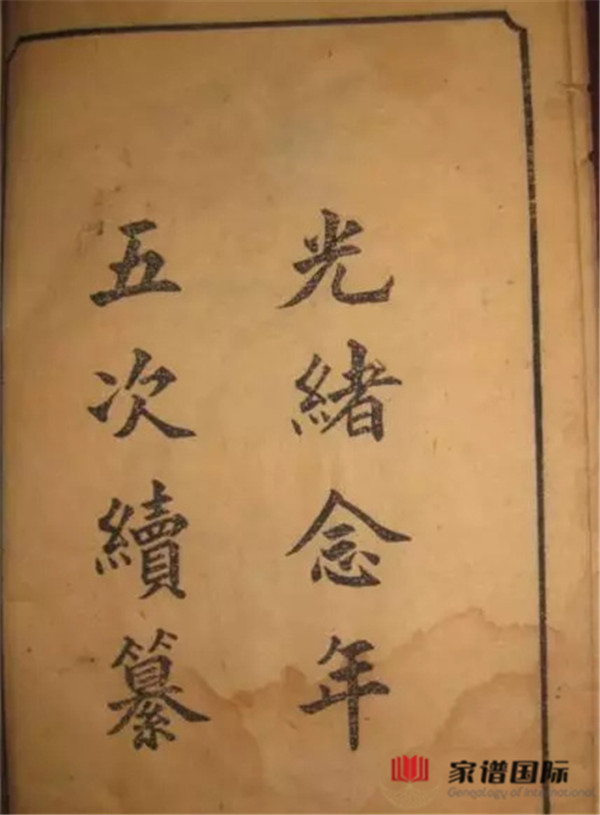 光緒念年
五次續纂
家谱国际
Genealogy of International